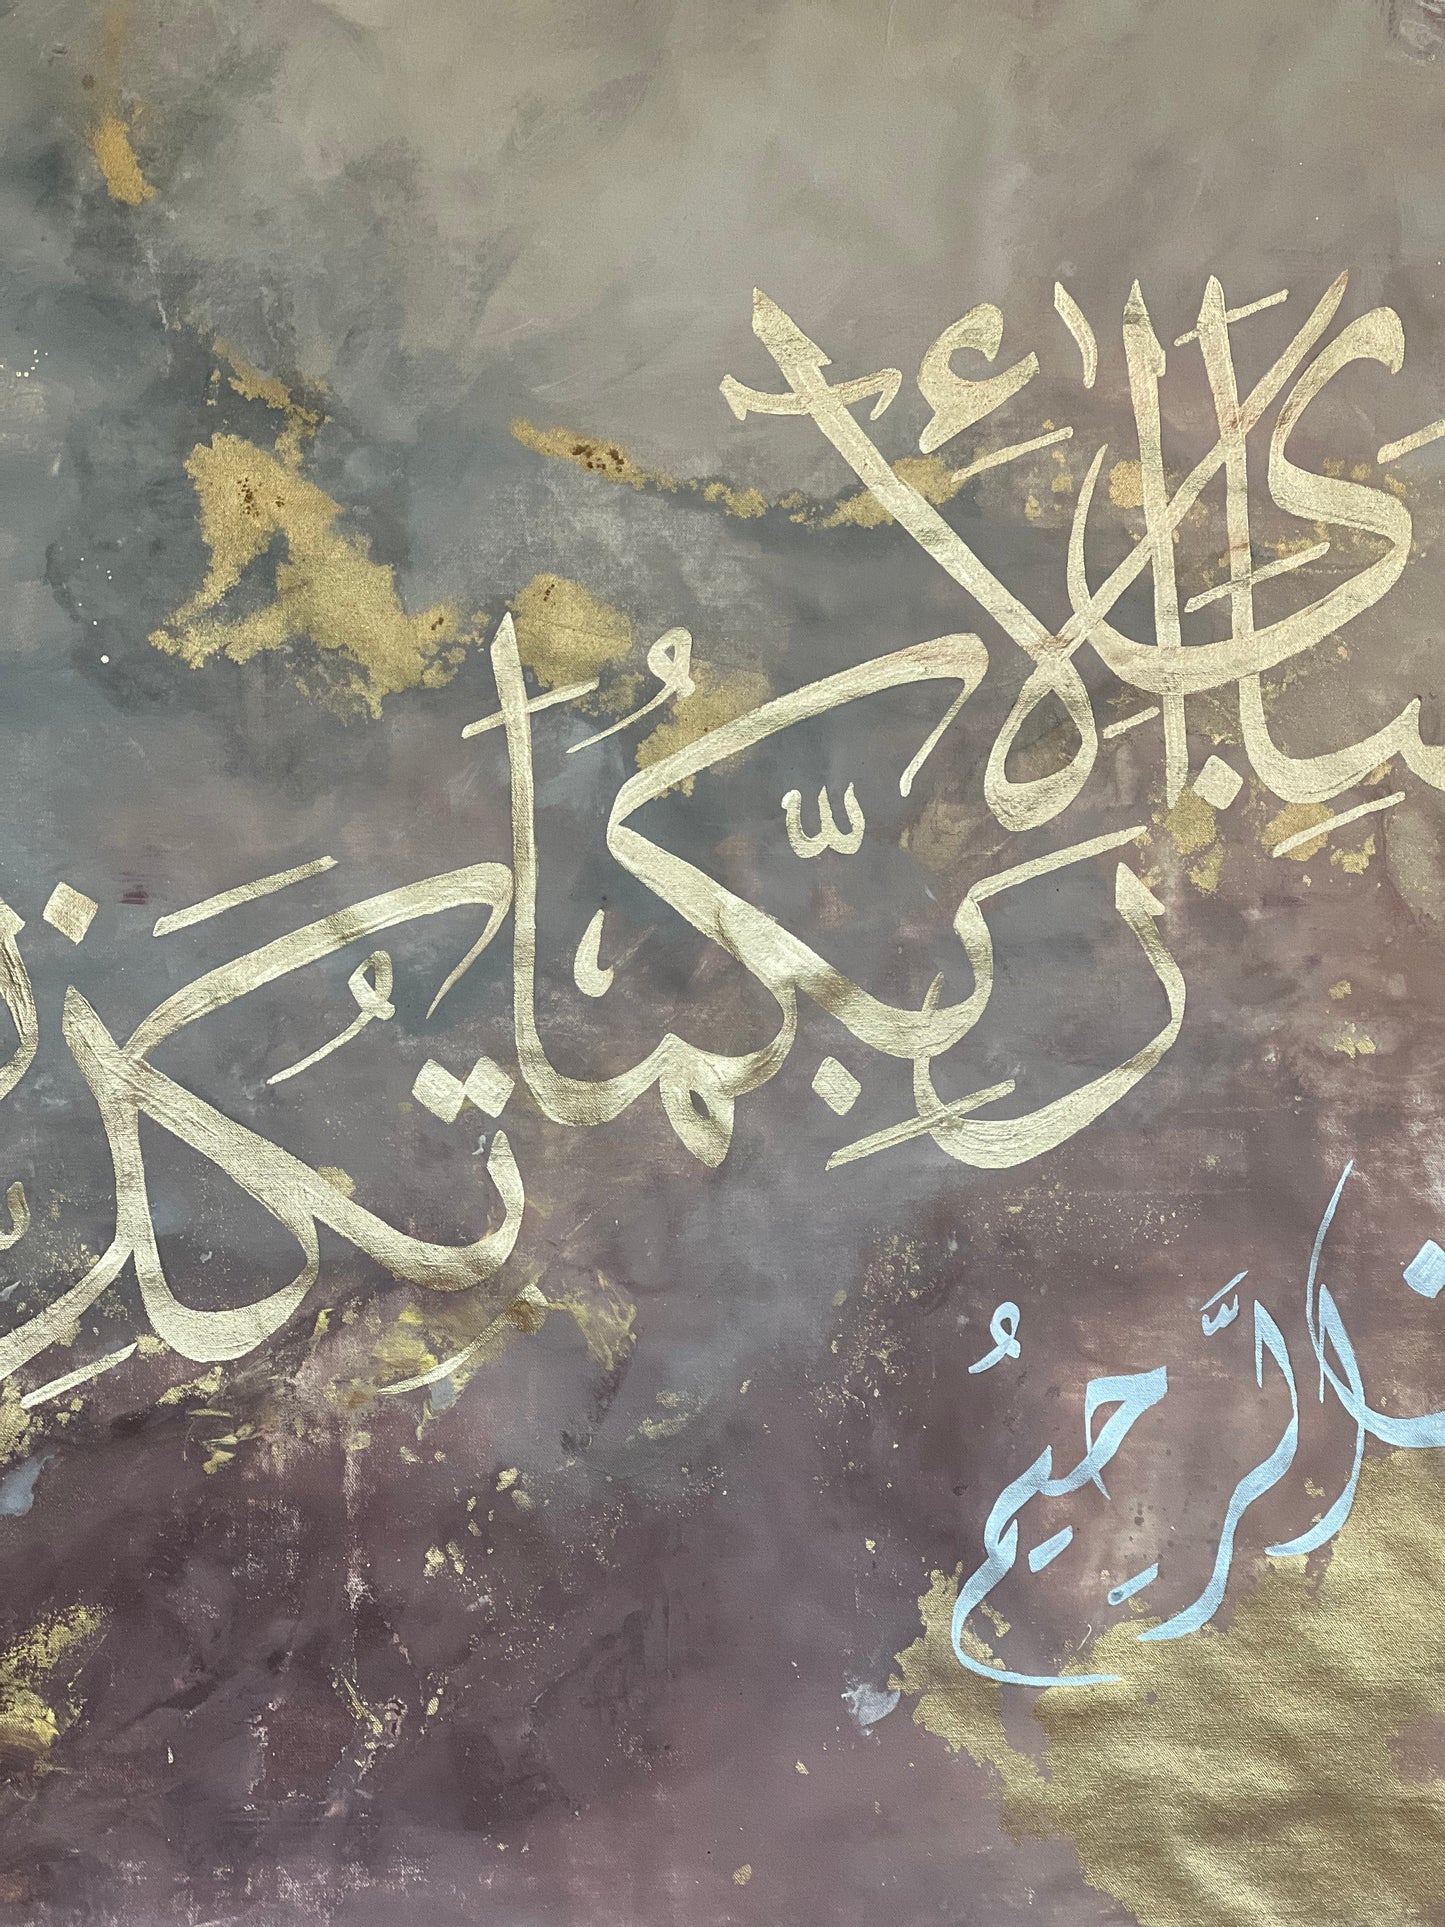 فَبِأَيِّ آلَاءِ
رَبِّكُمَا تُكَذِّبَانِ
الرَّحِيمُ